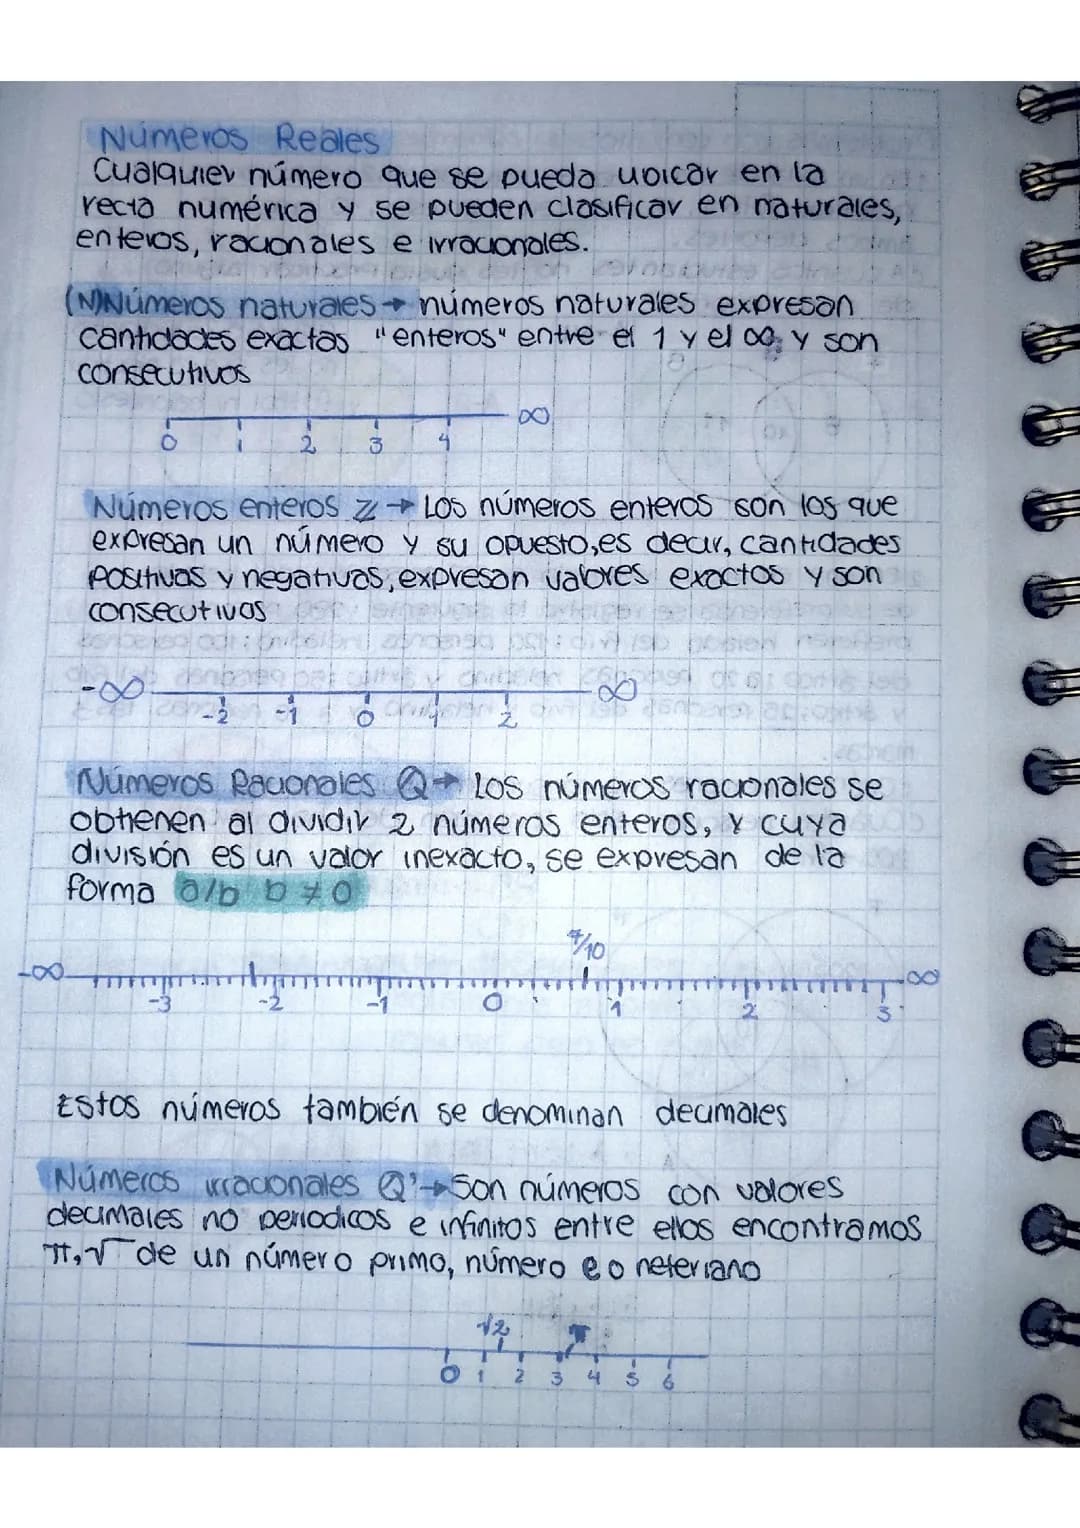 Números Reales
Cualquier número que se pueda ubicar en la
recta numérica y se pueden clasificar en naturales,
enteros, racionales e irracionales.
(N)Números naturales → números naturales expresan
cantidades exactas "enteros" entre el 1 y el ∞, y son
consecutivos
∞
0 1 2 3 4
Números enteros Z → Los números enteros son los que
expresan un número y su opuesto, es decir, cantidades
positivas y negativas, expresan valores exactos y son
consecutivos
-∞ ∞
-2 -1 0 1 2
Números Racionales Q → Los números racionales se
obtienen al dividir 2 números enteros, y cuya
división es un valor inexacto, se expresan de la
forma a/b b ≠ 0
7/10
-∞ ∞
-3 -2 -1 0 1 2 3
Estos números también se denominan decimales
Números irracionales Q' → Son números con valores
decimales no periodicos e infinitos entre ellos encontramos
π, √ de un número primo, número e o neteriano
√2 π
0 1 2 3 4 5 6